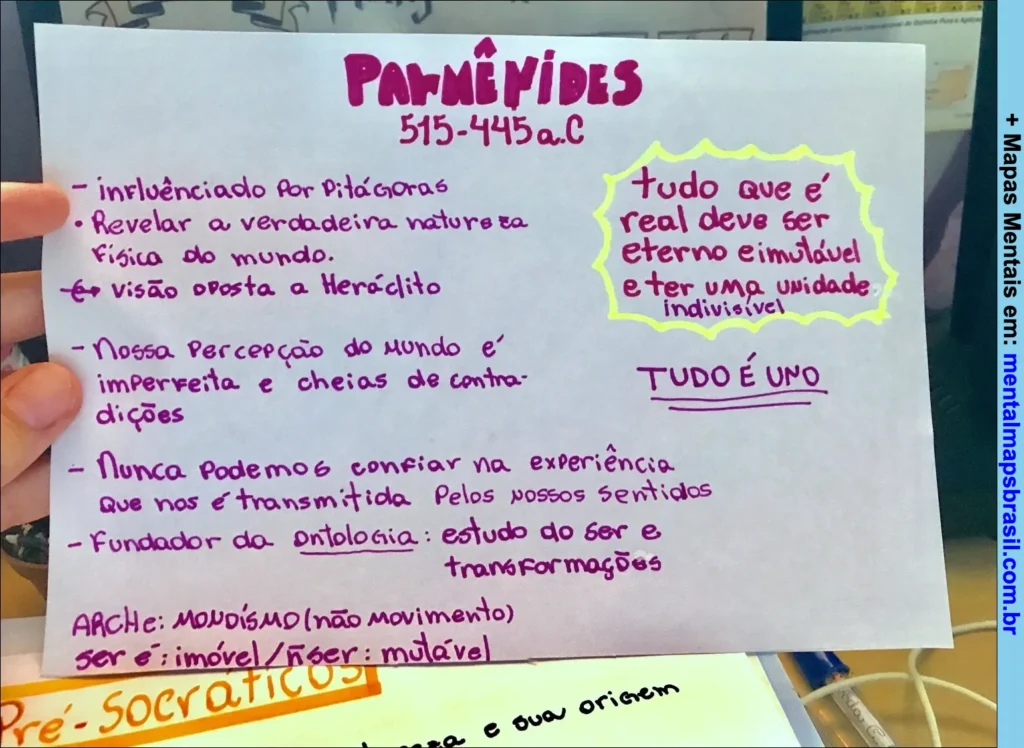 PARMÊNIDES
515-445 a.C
- influênciado por Pitágoras
• Revelar a verdadeira natureza
física do mundo.
↔ visão oposta a Heráclito
- Nossa percepção do mundo é
imperfeita e cheias de contra-
dições
- Nunca podemos confiar na experiência
que nos é transmitida pelos nossos sentidos
- Fundador da ontologia: estudo do ser e
transformações
ARCHE: MONOÍSMO (não movimento)
ser é: imóvel/ñ ser: mutável
tudo que é
real deve ser
eterno e imutável
e ter uma unidade
indivisível
TUDO É UNO
Pré-Socráticos
e sua origem
+ Mapas Mentais em: mentalmapsbrasil.com.br